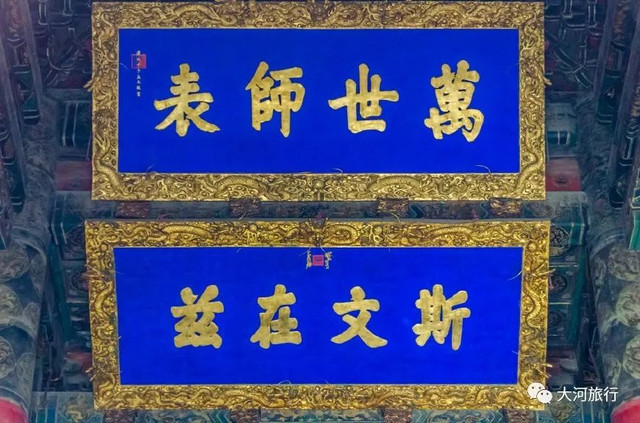 萬世師表
斯文在兹
大河旅行